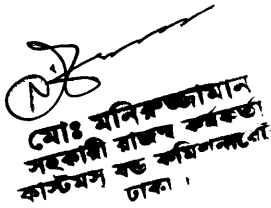 মোঃ মনিরুজ্জামান
সহকারী রাজস্ব কর্মকর্তা
কাস্টমস্ বন্ড কমিশনারেট
ঢাকা।